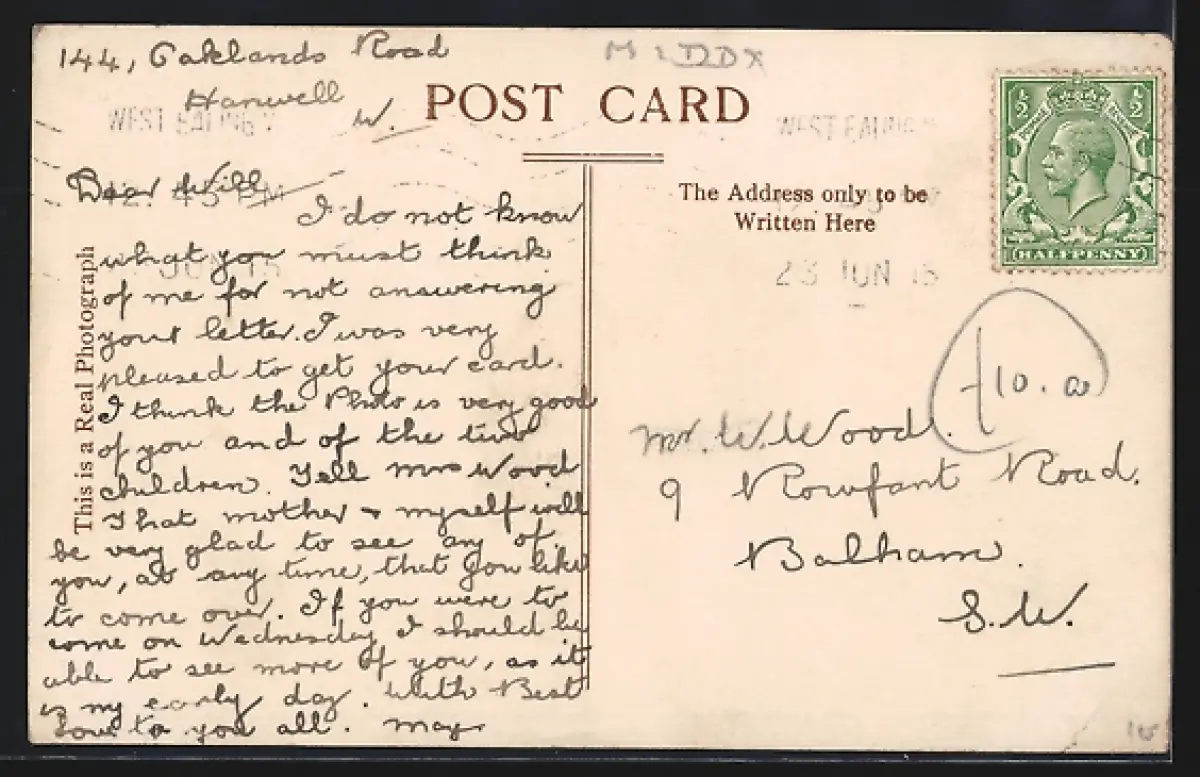 144, Oaklands Road
Hanwell
W.
MIDDX
POST CARD
WEST EALING
WEST EALING
45 PM
JUN 15
23 JUN 15
Dear Will
I do not know
what you must think
of me for not answering
your letter. I was very
pleased to get your card.
I think the Photo is very good
of you and of the two
children. Tell Mrs Wood
That mother & myself will
be very glad to see any of
you, at any time, that you like
to come over. If you were to
come on Wednesday I should be
able to see more of you, as it
is my early day. With Best
Love to you all. May
This is a Real Photograph
The Address only to be
Written Here
½ ½
HALFPENNY
10. a
Mr. W. Wood.
9 Rowfant Road.
Balham.
S.W.